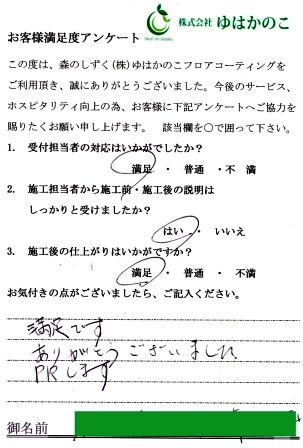 株式会社 ゆはかのこ
お客様満足度アンケート
この度は、森のしずく(株)ゆはかのこフロアコーティングを
ご利用頂き、誠にありがとうございました。今後のサービス、
ホスピタリティ向上の為、お客様に下記アンケートへご協力を
賜りたくお願い申し上げます。 該当欄を○で囲って下さい。
1. 受付担当者の対応はいかがでしたか?
満足 ・ 普通 ・不 満
2. 施工担当者から施工前・施工後の説明は
しっかりと受けましたか?
はい ・ いいえ
3. 施工後の仕上がりはいかがですか?
満足 ・ 普通 ・ 不満
お気付きの点がございましたら、ご記入ください。
満足です
ありがとうございました
PRします
御名前